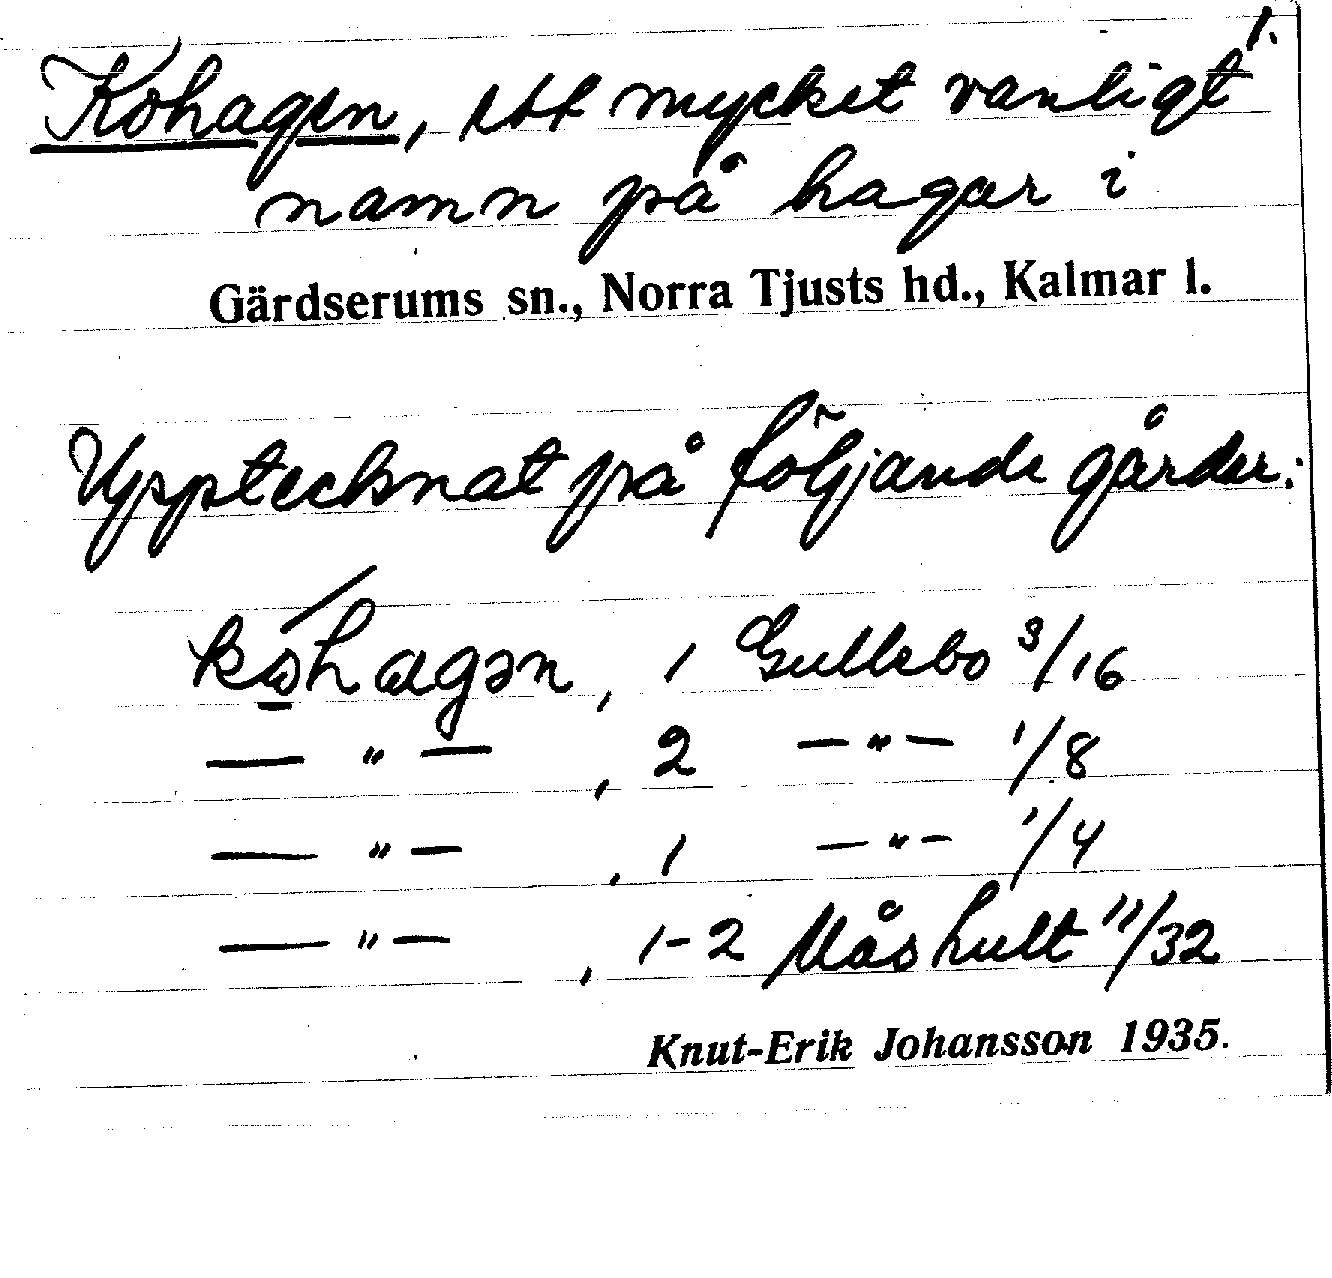 1.
Kohagen, ett mycket vanligt
namn på hagar i
Gärdserums sn., Norra Tjusts hd., Kalmar l.
Upptecknat på följande gårder:
kωhagən, 1 Gullebo 3/16
— " — , 2 — " — 1/8
— " — , 1 — " — 1/4
— " — , 1-2 Måshult 11/32
Knut-Erik Johansson 1935.